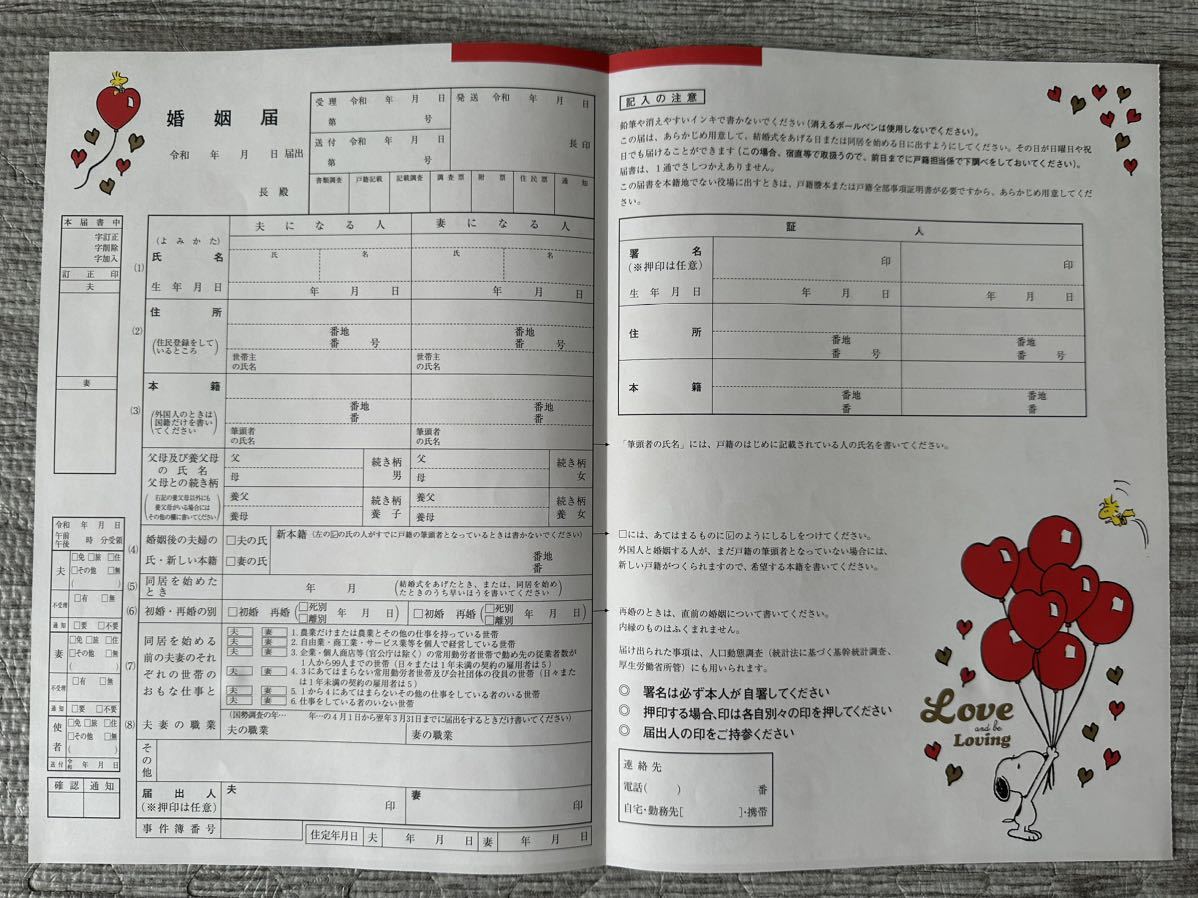 婚姻届
令和 年 月 日 届出
長 殿
受理 令和 年 月 日
第 号
送付 令和 年 月 日
第 号
発送 令和 年 月 日
長 印
書類調査 戸籍記載 記載調査 調査票 附票 住民票 通知
本届書中
字訂正
字削除
字加入
訂正印
夫
妻
夫になる人 妻になる人
(1)
(よみかた)
氏名
氏 名 氏 名
生年月日 年 月 日 年 月 日
(2)
住所
(住民登録をしているところ)
番地 番地
番 号 番 号
世帯主の氏名 世帯主の氏名
(3)
本籍
(外国人のときは国籍だけを書いてください)
番地 番地
番 番
筆頭者の氏名 筆頭者の氏名
父母及び養父母の氏名
父母との続き柄
(右記の養父母以外にも養父母がいる場合にはその他の欄に書いてください)
父 続き柄 父 続き柄
母 男 母 女
養父 続き柄 養父 続き柄
養母 養子 養母 養女
(4)
婚姻後の夫婦の氏・新しい本籍
□夫の氏
□妻の氏
新本籍(左の☑の氏の人がすでに戸籍の筆頭者となっているときは書かないでください)
番地
番
(5)
同居を始めたとき
年 月
(結婚式をあげたとき、または、同居を始めたときのうち早いほうを書いてください)
(6)
初婚・再婚の別
□初婚 再婚(□死別 □離別 年 月 日) □初婚 再婚(□死別 □離別 年 月 日)
(7)
同居を始める前の夫妻のそれぞれの世帯のおもな仕事と
夫 妻 1.農業だけまたは農業とその他の仕事を持っている世帯
夫 妻 2.自由業・商工業・サービス業等を個人で経営している世帯
夫 妻 3.企業・個人商店等(官公庁は除く)の常用勤労者世帯で勤め先の従業者数が
1人から99人までの世帯(日々または1年未満の契約の雇用者は5)
夫 妻 4.3にあてはまらない常用勤労者世帯及び会社団体の役員の世帯(日々また
は1年未満の契約の雇用者は5)
夫 妻 5.1から4にあてはまらないその他の仕事をしている者のいる世帯
夫 妻 6.仕事をしている者のいない世帯
(8)
夫妻の職業
(国勢調査の年…　年…の4月1日から翌年3月31日までに届出をするときだけ書いてください)
夫の職業 妻の職業
その他
届出人
(※押印は任意)
夫 印 妻 印
事件簿番号
住定年月日 夫 年 月 日 妻 年 月 日
令和 年 月 日
午前 午後 時 分受領
夫
□免 □旅 □住
□その他 □無
( )
不受理 □有 □無
通知 □要 □不要
妻
□免 □旅 □住
□その他 □無
( )
不受理 □有 □無
通知 □要 □不要
使者
□免 □旅 □住
□その他 □無
( )
送付 令和 年 月 日
確認 通知
記入の注意
鉛筆や消えやすいインキで書かないでください(消えるボールペンは使用しないでください)。
この届は、あらかじめ用意して、結婚式をあげる日または同居を始める日に出すようにしてください。その日が日曜日や祝
日でも届けることができます(この場合、宿直等で取扱うので、前日までに戸籍担当係で下調べをしておいてください)。
届書は、1通でさしつかえありません。
この届書を本籍地でない役場に出すときは、戸籍謄本または戸籍全部事項証明書が必要ですから、あらかじめ用意してくだ
さい。
証人
署名
(※押印は任意)
印 印
生年月日 年 月 日 年 月 日
住所
番地 番地
番 号 番 号
本籍
番地 番地
番 番
「筆頭者の氏名」には、戸籍のはじめに記載されている人の氏名を書いてください。
□には、あてはまるものに☑のようにしるしをつけてください。
外国人と婚姻する人が、まだ戸籍の筆頭者となっていない場合には、
新しい戸籍がつくられますので、希望する本籍を書いてください。
再婚のときは、直前の婚姻について書いてください。
内縁のものはふくまれません。
届け出られた事項は、人口動態調査(統計法に基づく基幹統計調査、
厚生労働省所管)にも用いられます。
◎ 署名は必ず本人が自署してください
◎ 押印する場合、印は各自別々の印を押してください
◎ 届出人の印をご持参ください
連絡先
電話( ) 番
自宅・勤務先[ ]・携帯
Love
and be
Loving